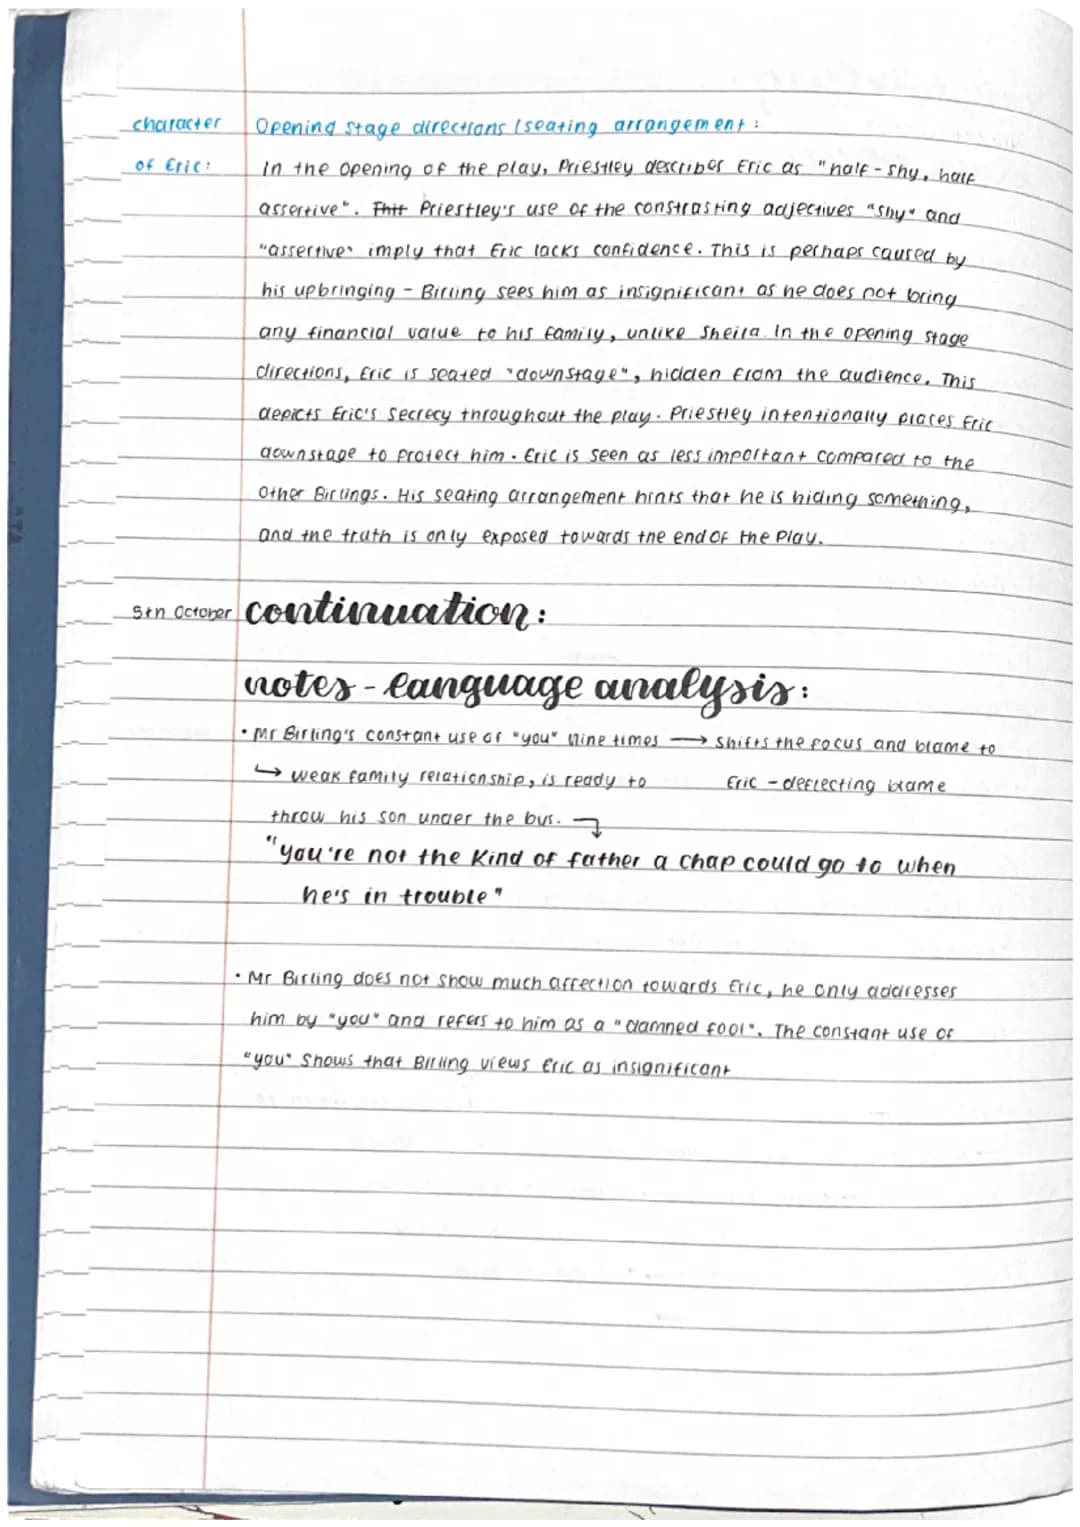 character Opening stage directions / seating arrangement :
of Eric: In the opening of the play, Priestley describes Eric as "half-shy, half
assertive". This Priestley's use of the constrasting adjectives "shy" and
"assertive" imply that Eric lacks confidence. This is perhaps caused by
his upbringing - Birling sees him as insignificant as he does not bring
any financial value to his family, unlike Sheila. In the opening stage
directions, Eric is seated "downstage", hidden from the audience. This
depicts Eric's secrecy throughout the play. Priestley intentionally places Eric
downstage to protect him. Eric is seen as less important compared to the
other Birlings. His seating arrangement hints that he is hiding something,
and the truth is only exposed towards the end of the play.
5th October continuation:
notes - language analysis:
• Mr Birling's constant use of "you" nine times → shifts the focus and blame to
↳ weak family relationship, is ready to Eric - deflecting blame
throw his son under the bus.
"you're not the kind of father a chap could go to when
he's in trouble"
• Mr Birling does not show much affection towards Eric, he only addresses
him by "you" and refers to him as a "damned fool". The constant use of
"you" shows that Birling views Eric as insignificant